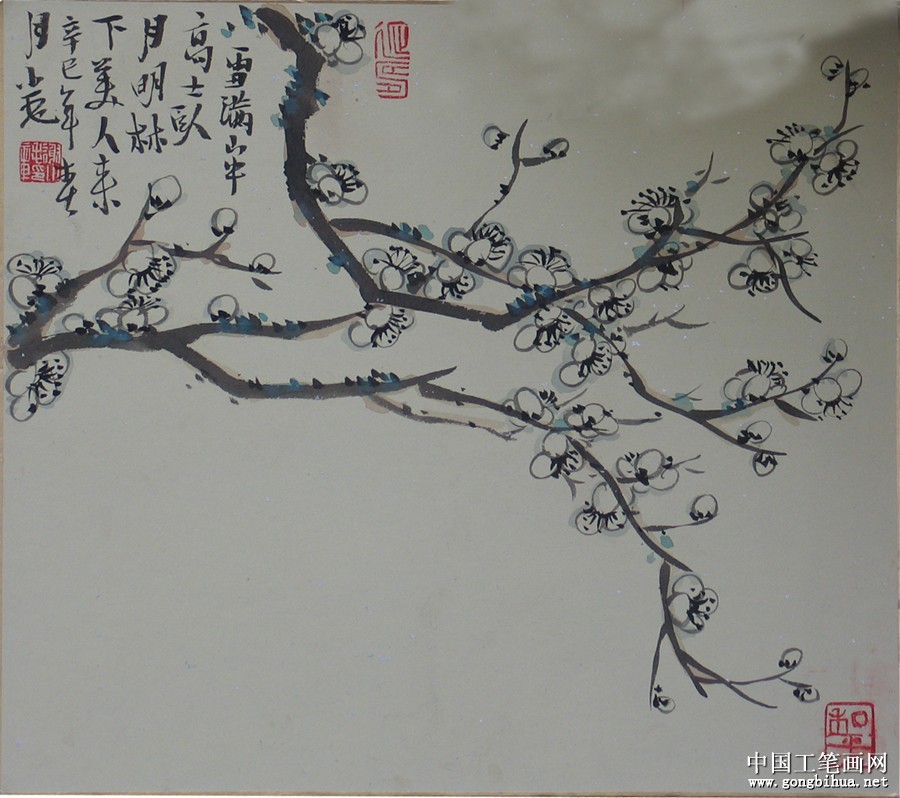 雪满山中
高士臥
月明林
下美人来
辛巳年春
月小
和平
中国工笔画网
www.gongbihua.net